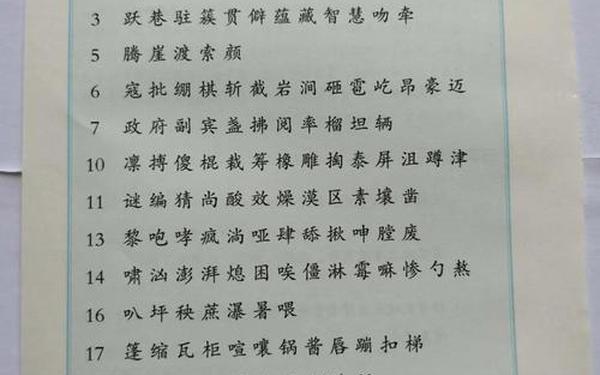 3 跃巷驻簇贯僻蕴藏智慧吻牵
5 腾崖渡索颜
6 寇批绷棋斩截岩涧砸雹屹昂豪迈
7 政府副宾盏拂阅率榴坦辆
10 凛搏傻棍裁筹橡雕掏泰屏沮蹲津
11 谜编猜尚酸效燥漠区素壤凿
13 黎咆哮疯淌哑肆舔揪呻膛废
14 啸汹澎湃熄困唉僵淋霉嘛惨勺熬
16 叭坪秧蔗瀑暑喂
17 篷缩瓦柜喧嚷锅酱唇蹦扣梯